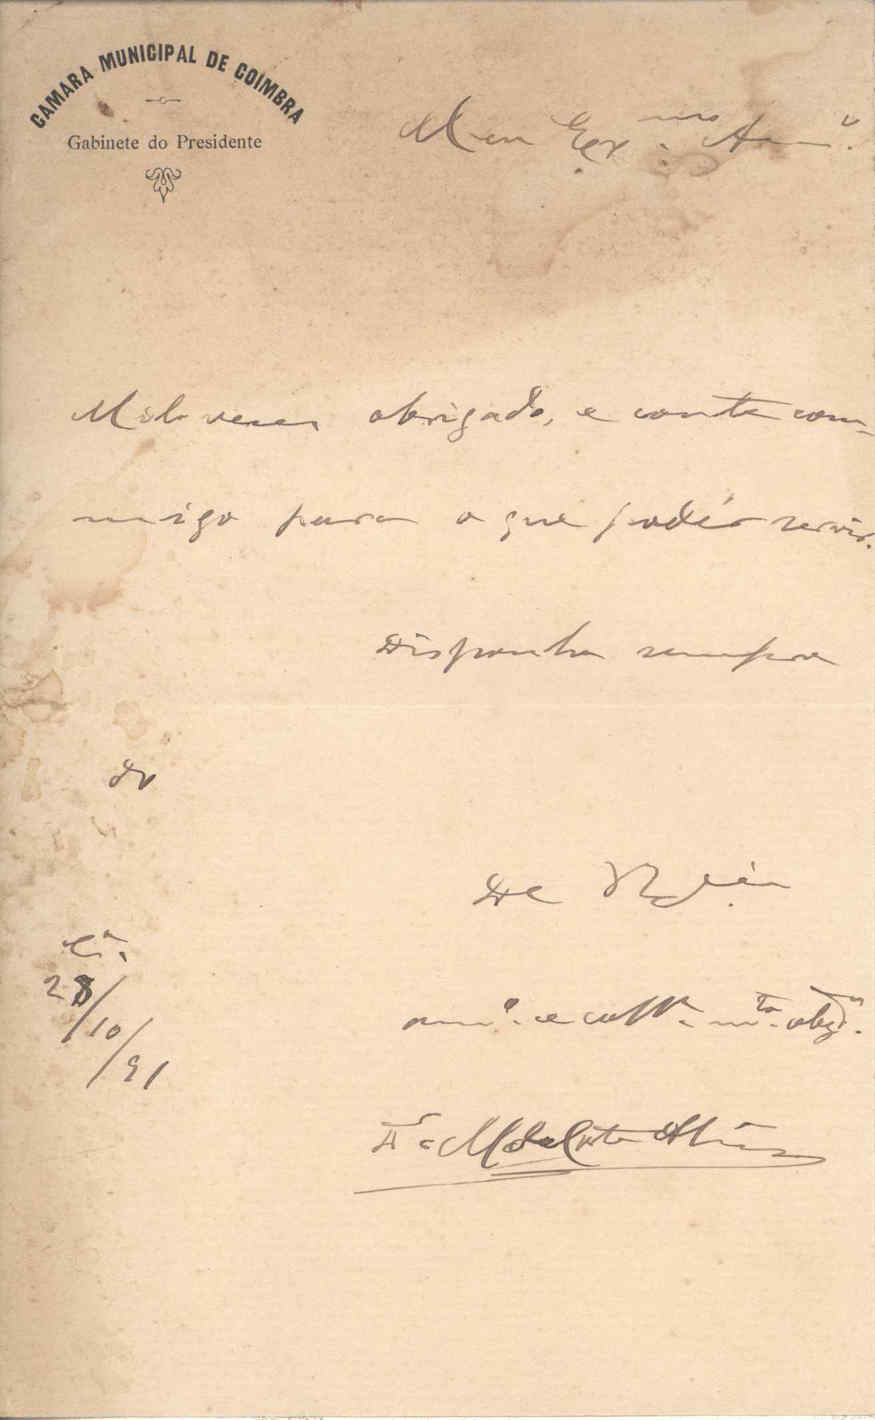 CAMARA MUNICIPAL DE COIMBRA
Gabinete do Presidente
Meu Ex.mo Am.o
Mil vezes obrigado, e conte com-
migo para o que podér servir.
Disponha sempre
do
De V. Ex.cia
C.a
28/10/91
am.o e coll.a m.to obg.o
Dr. M. da Costa Alemão